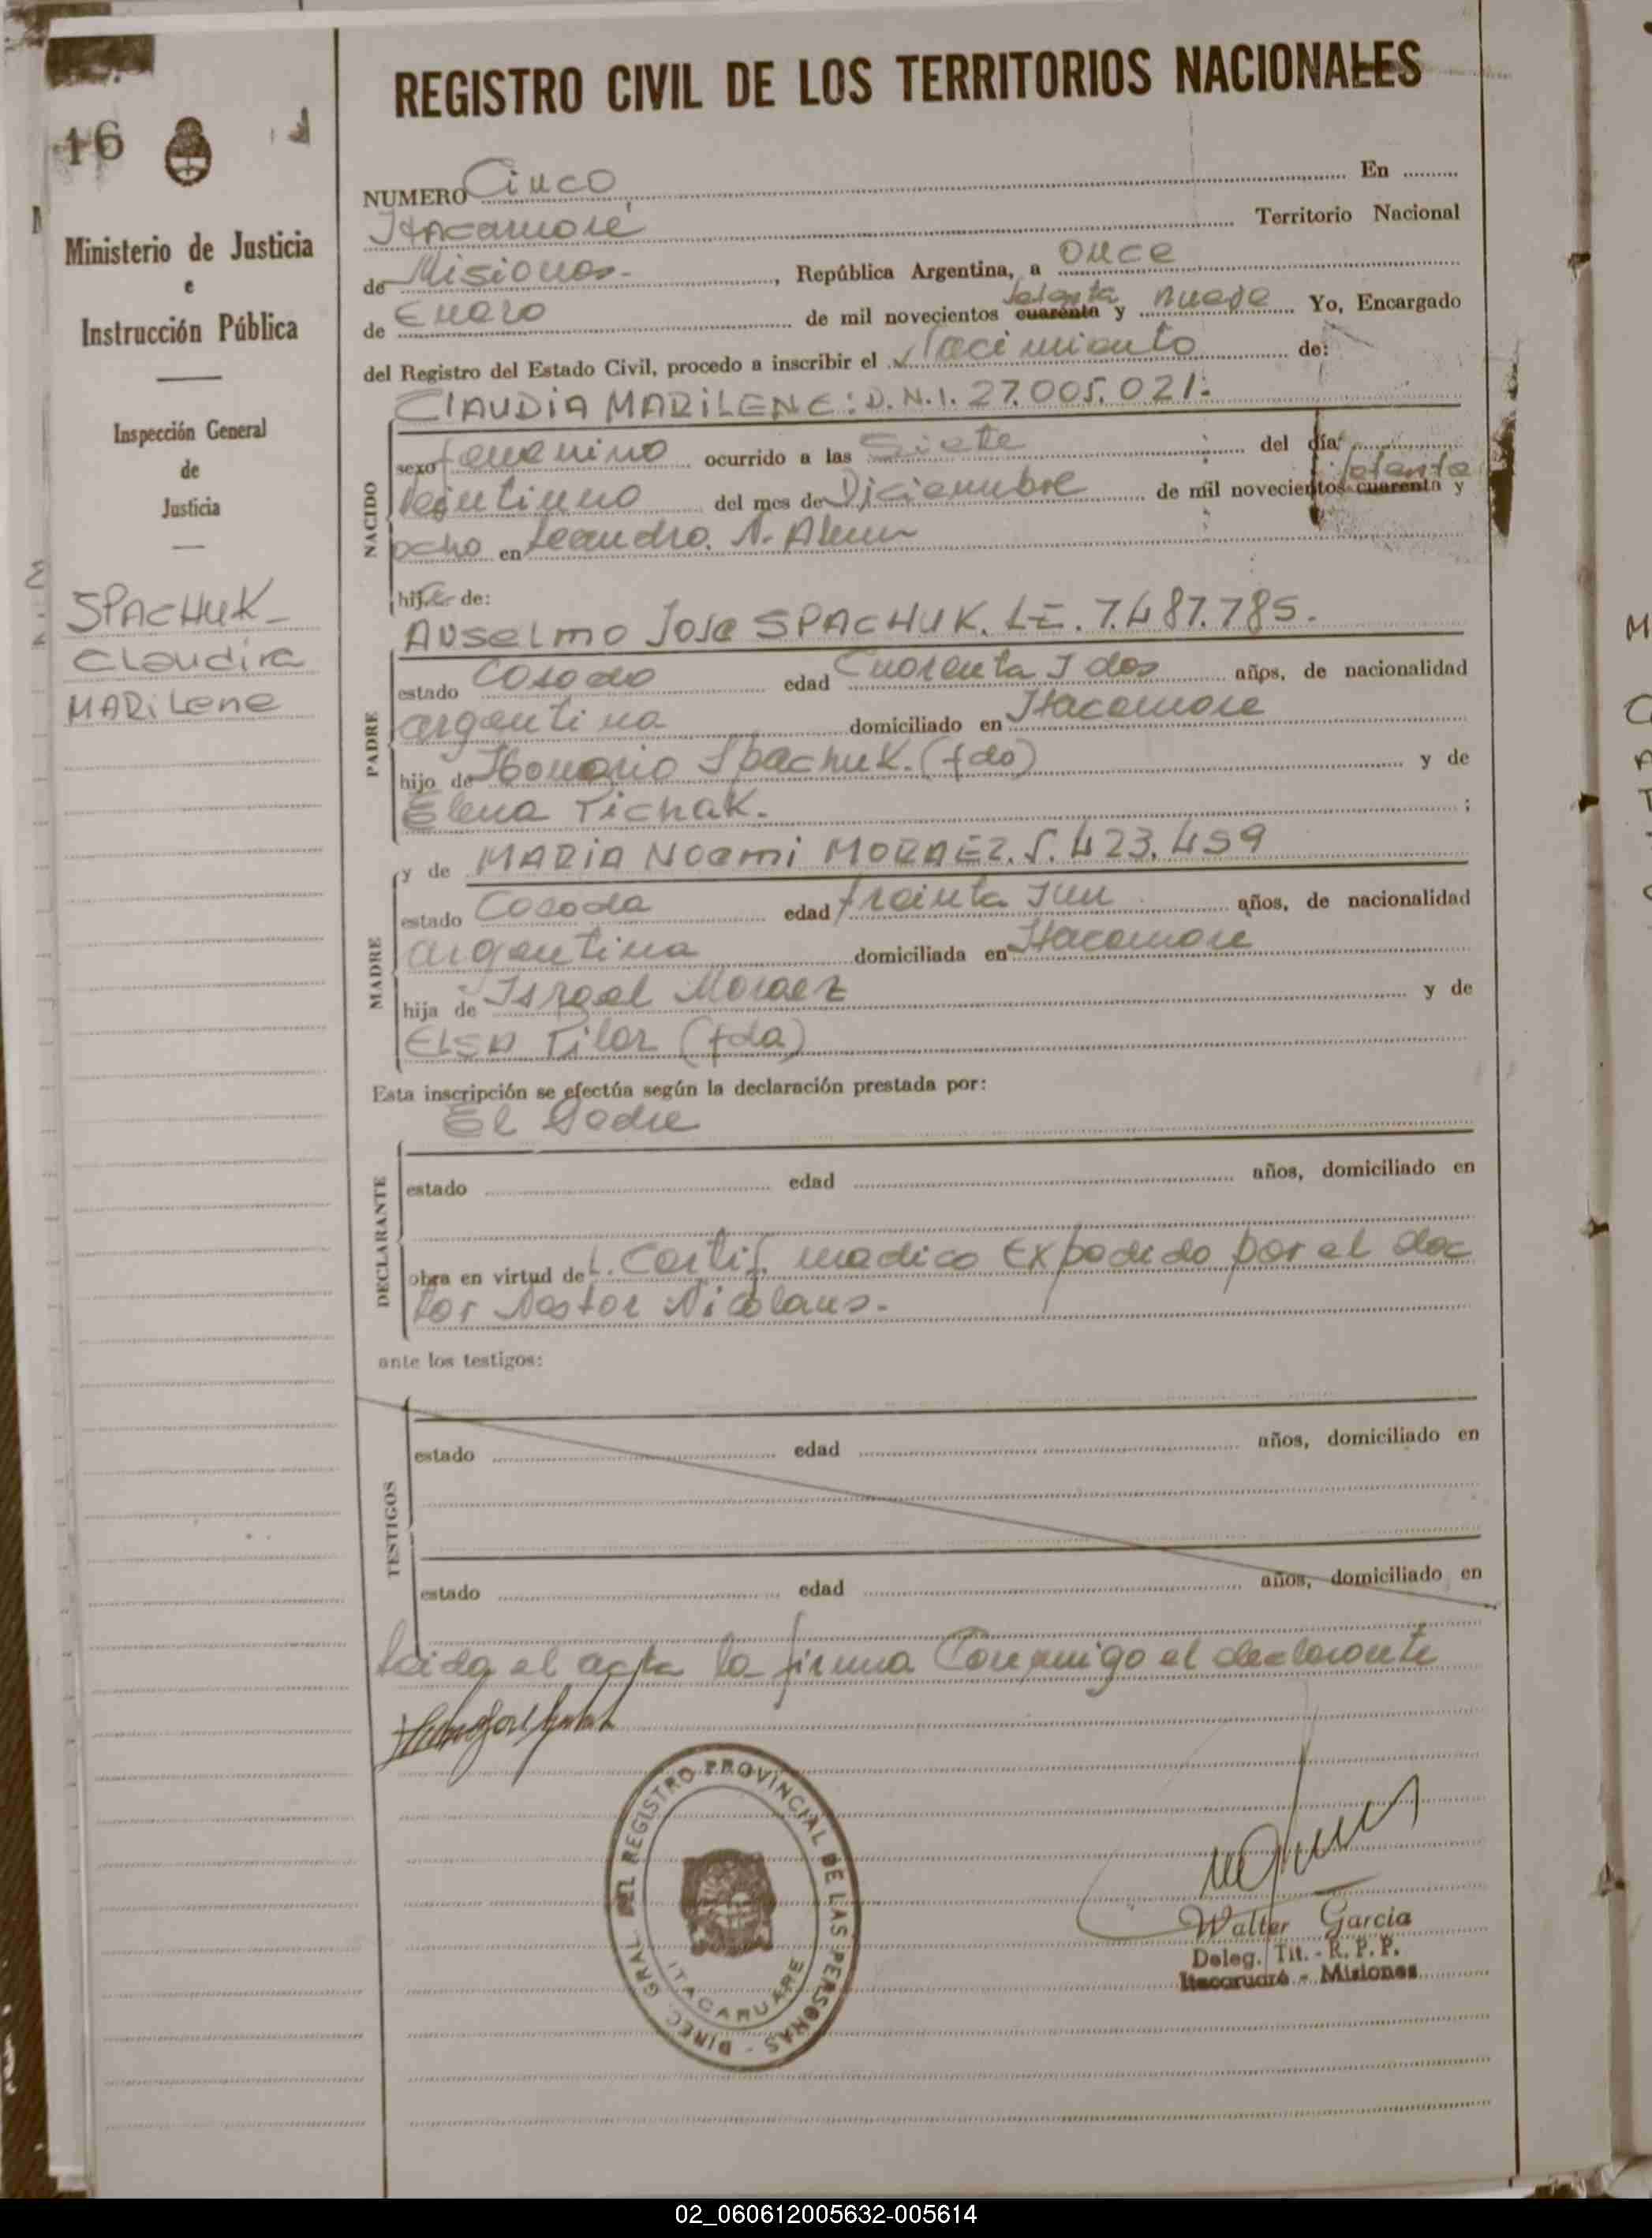 REGISTRO CIVIL DE LOS TERRITORIOS NACIONALES
16
Ministerio de Justicia
e
Instrucción Pública
Inspección General
de
Justicia
SPACHUK
Claudia
MARILene
NUMERO Cinco En
Itacaruaré Territorio Nacional
de Misiones.-, República Argentina, a once
de Enero de mil novecientos cuarenta setenta y nueve Yo, Encargado
del Registro del Estado Civil, procedo a inscribir el Nacimiento de:
CLAUDIA MARILENE: D.N.I. 27.005.021.
NACIDO
sexo femenino ocurrido a las Siete del día
Veintiuno del mes de Diciembre de mil novecientos cuarenta setenta y
ocho en Leandro. N. Alem
hija de:
PADRE
Anselmo Jose SPACHUK. LE. 7.487.785.
estado Casado edad Cuarenta y dos años, de nacionalidad
argentina domiciliado en Itacaruare
hijo de Honorio Spachuk. (fdo) y de
Elena Pichak. ;
MADRE
y de MARIA Noemi MORAEZ. 5.423.459
estado Casada edad treinta y un años, de nacionalidad
argentina domiciliada en Itacaruare
hija de Israel Moraez y de
ELSA Pilar (fda)
Esta inscripción se efectúa según la declaración prestada por:
El Padre
DECLARANTE
estado edad años, domiciliado en
obra en virtud de L. Certif. medico Expedido por el doc
tor Nestor Nicolaus.-
ante los testigos:
TESTIGOS
estado edad años, domiciliado en
estado edad años, domiciliado en
Leida el acta la firma Conmigo el declarante
DIREC. GRAL. DEL REGISTRO PROVINCIAL DE LAS PERSONAS -
ITACARUARE
Walter Garcia
Deleg. Tit. - R. P. P.
Itacaruaré - Misiones
02_060612005632-005614